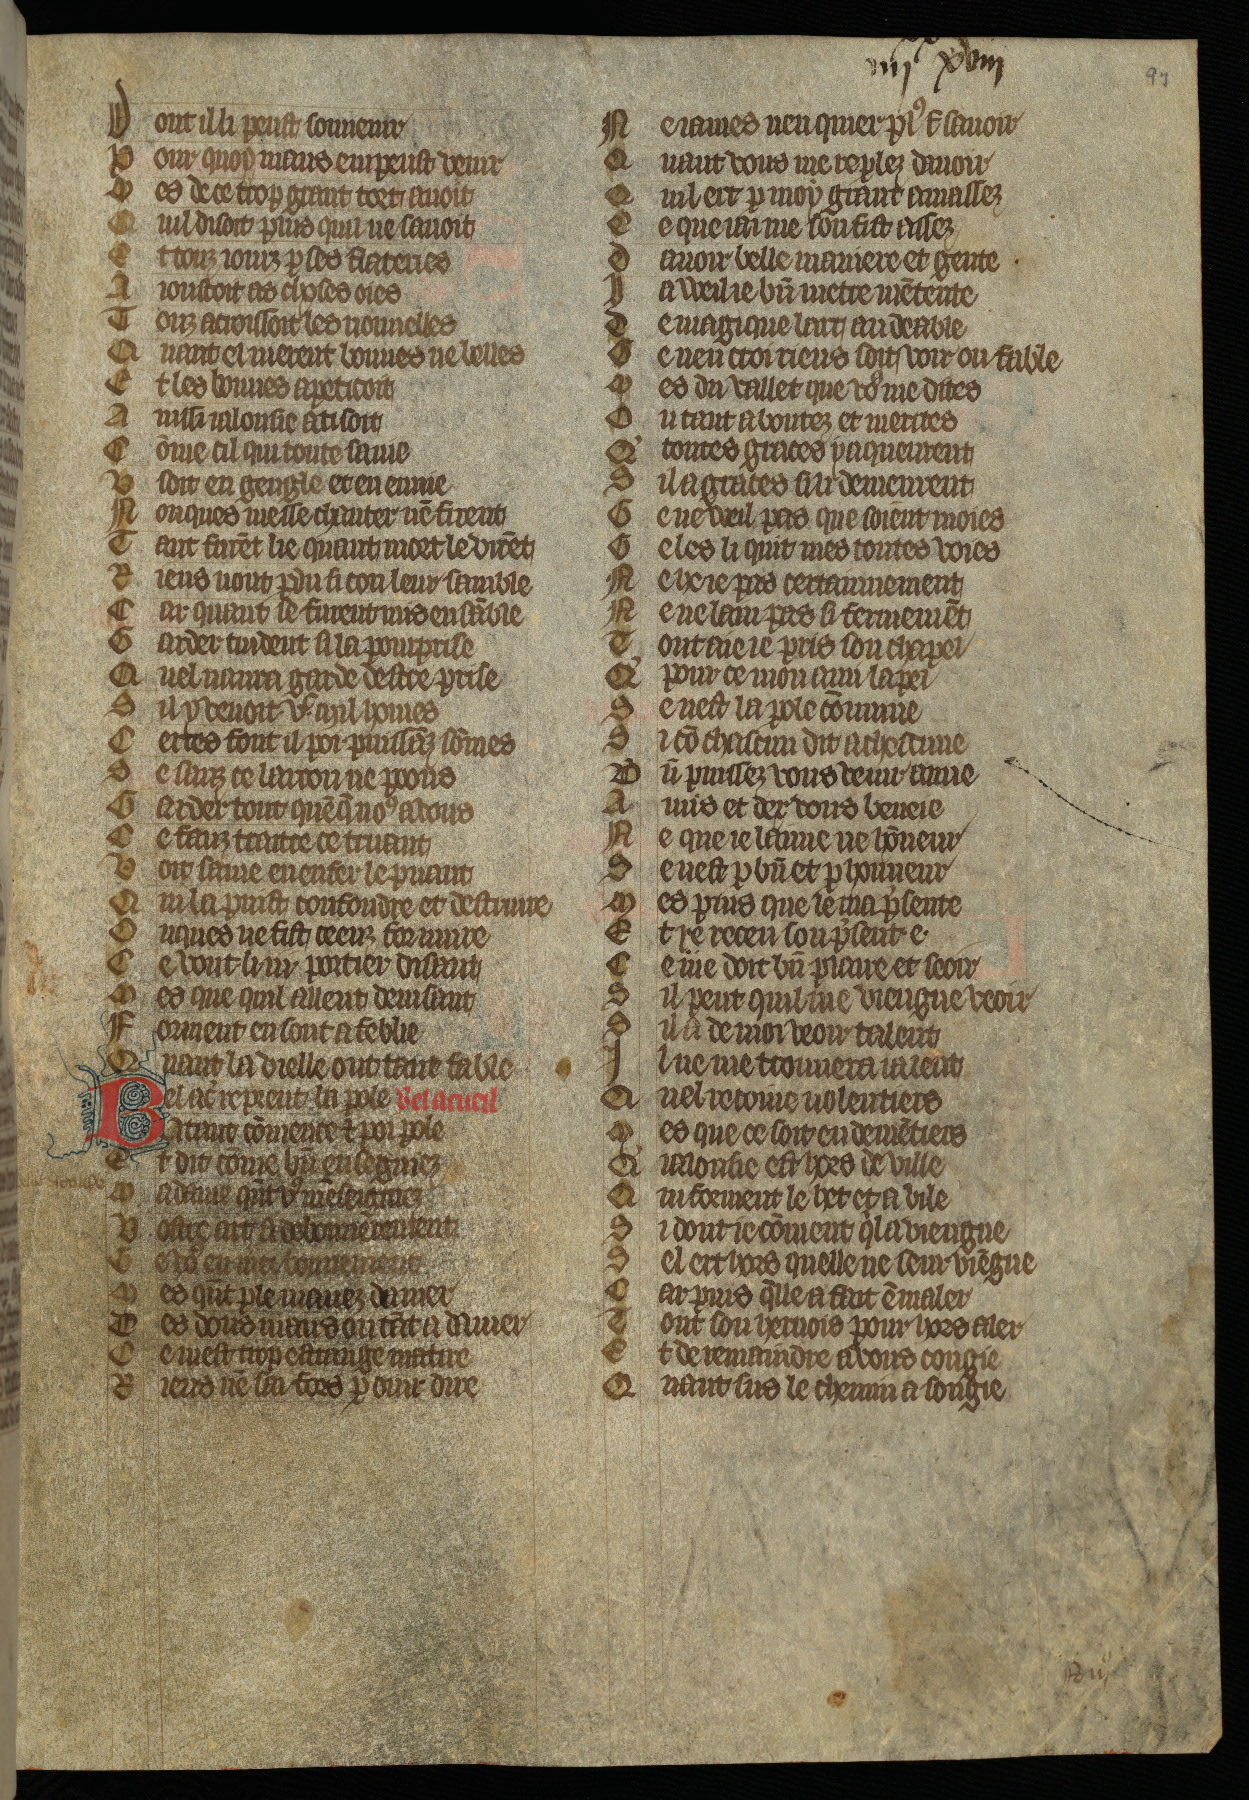 iiijxx xviii
97
D ont il li peust souuenir
P our quoy maus em peust venir
M es de ce trop grant tort auoit
Q uil disoit plus qui ne sauoit
E t touz iourz p ses flateries
A ioustoit as choses oies
T ouz acroissoit les nouuelles
Q uant el nierent bonnes ne belles
E t les bonnes apeticoit
A inssi ialousie atisoit
C õme cil qui toute sa uie
U soit en gengle et en enuie
N onques messe chanter nẽ firent
T ant furẽt lie quant mort le virẽt
R iens nont pdu si con leur samble
C ar quant se furent mis ensãble
G arder cuident si la pourprise
Q uel naura garde destre prise
S il y venoit v͛ mil homes
C ertes font il poi puissãz sõmes
S e sanz ce larron ne poons
G arder tout quẽq̃ no9 auons
C e faus traitre ce truant
V oit same en enfer le puant
Q ui la puist confondre et destruire
O nques ne fist ceenz for nuire
C e vont li iii portier disant
M es que quil aillent deuisant
F orment en sont afeblie
Q uant la vielle out tant fable
Bel ac̃ reprent la pole Bel acueil
A tant cõmence t͛ poi pole
E t dit cõme bñ enseignez
M adame qñt v9 menseigniez
V ostre art si debonnerement
G e vo9 en merci bonnement
M es qñt ple mauez damer
D es dous maus ou tãt a damer
C e mest trop estrange matire
R iens ne sai fors p̱ ouir dire
N e iames nen quier pl9 t͛ sauoir
Q uant vous me replez dauoir
Q uil ert p moy grant amassez
C e que iai me souffist assez
D auoir belle maniere et gente
I a weil ie bñ mettre mẽtente
D e magique lart au deable
G e nen croi riens soit voir ou fable
M es du vallet que vo9 me dites
O u tant a bontez et merites
Q' toutes graces ꝑ aqueurent
S il a graces si li demeurent
G e ne weil pas que soient moies
G e les li quit mes toutes voies
N e he ie pas certainnement
N e ne laim pas si fermemẽt
T out aie ie pris son chapel
Q' pour ce mon ami lapel
S e nest la pole cõmune
S i cõ chascun dit a chescune
B ñ puissez vous venir amie
A mis et dex vous beneie
N e que ie laime ne hõneur
S e nest p bñ et p honneur
M es puis que le ma pr͛sente
E t re receu son pr͛sent e
C e me doit bñ plaire et seoir
S il peut quil me viengne veoir
S il a de moi veoir talent
I l ne me trouuera ia lent
Q uel recoiue uolentiers
M es que ce soit en demẽtiers
Q' ialousie est hors de ville
Q ui forment le het et avile
S i dout ie cõment q̃ la viengne
S el ert hors quelle ne seur viẽgne
C ar puis q̃lle a fait ẽmaler
T out son hernois pour hors aler
E t de remaindre a vous congie
Q uant sus le chemin a songie